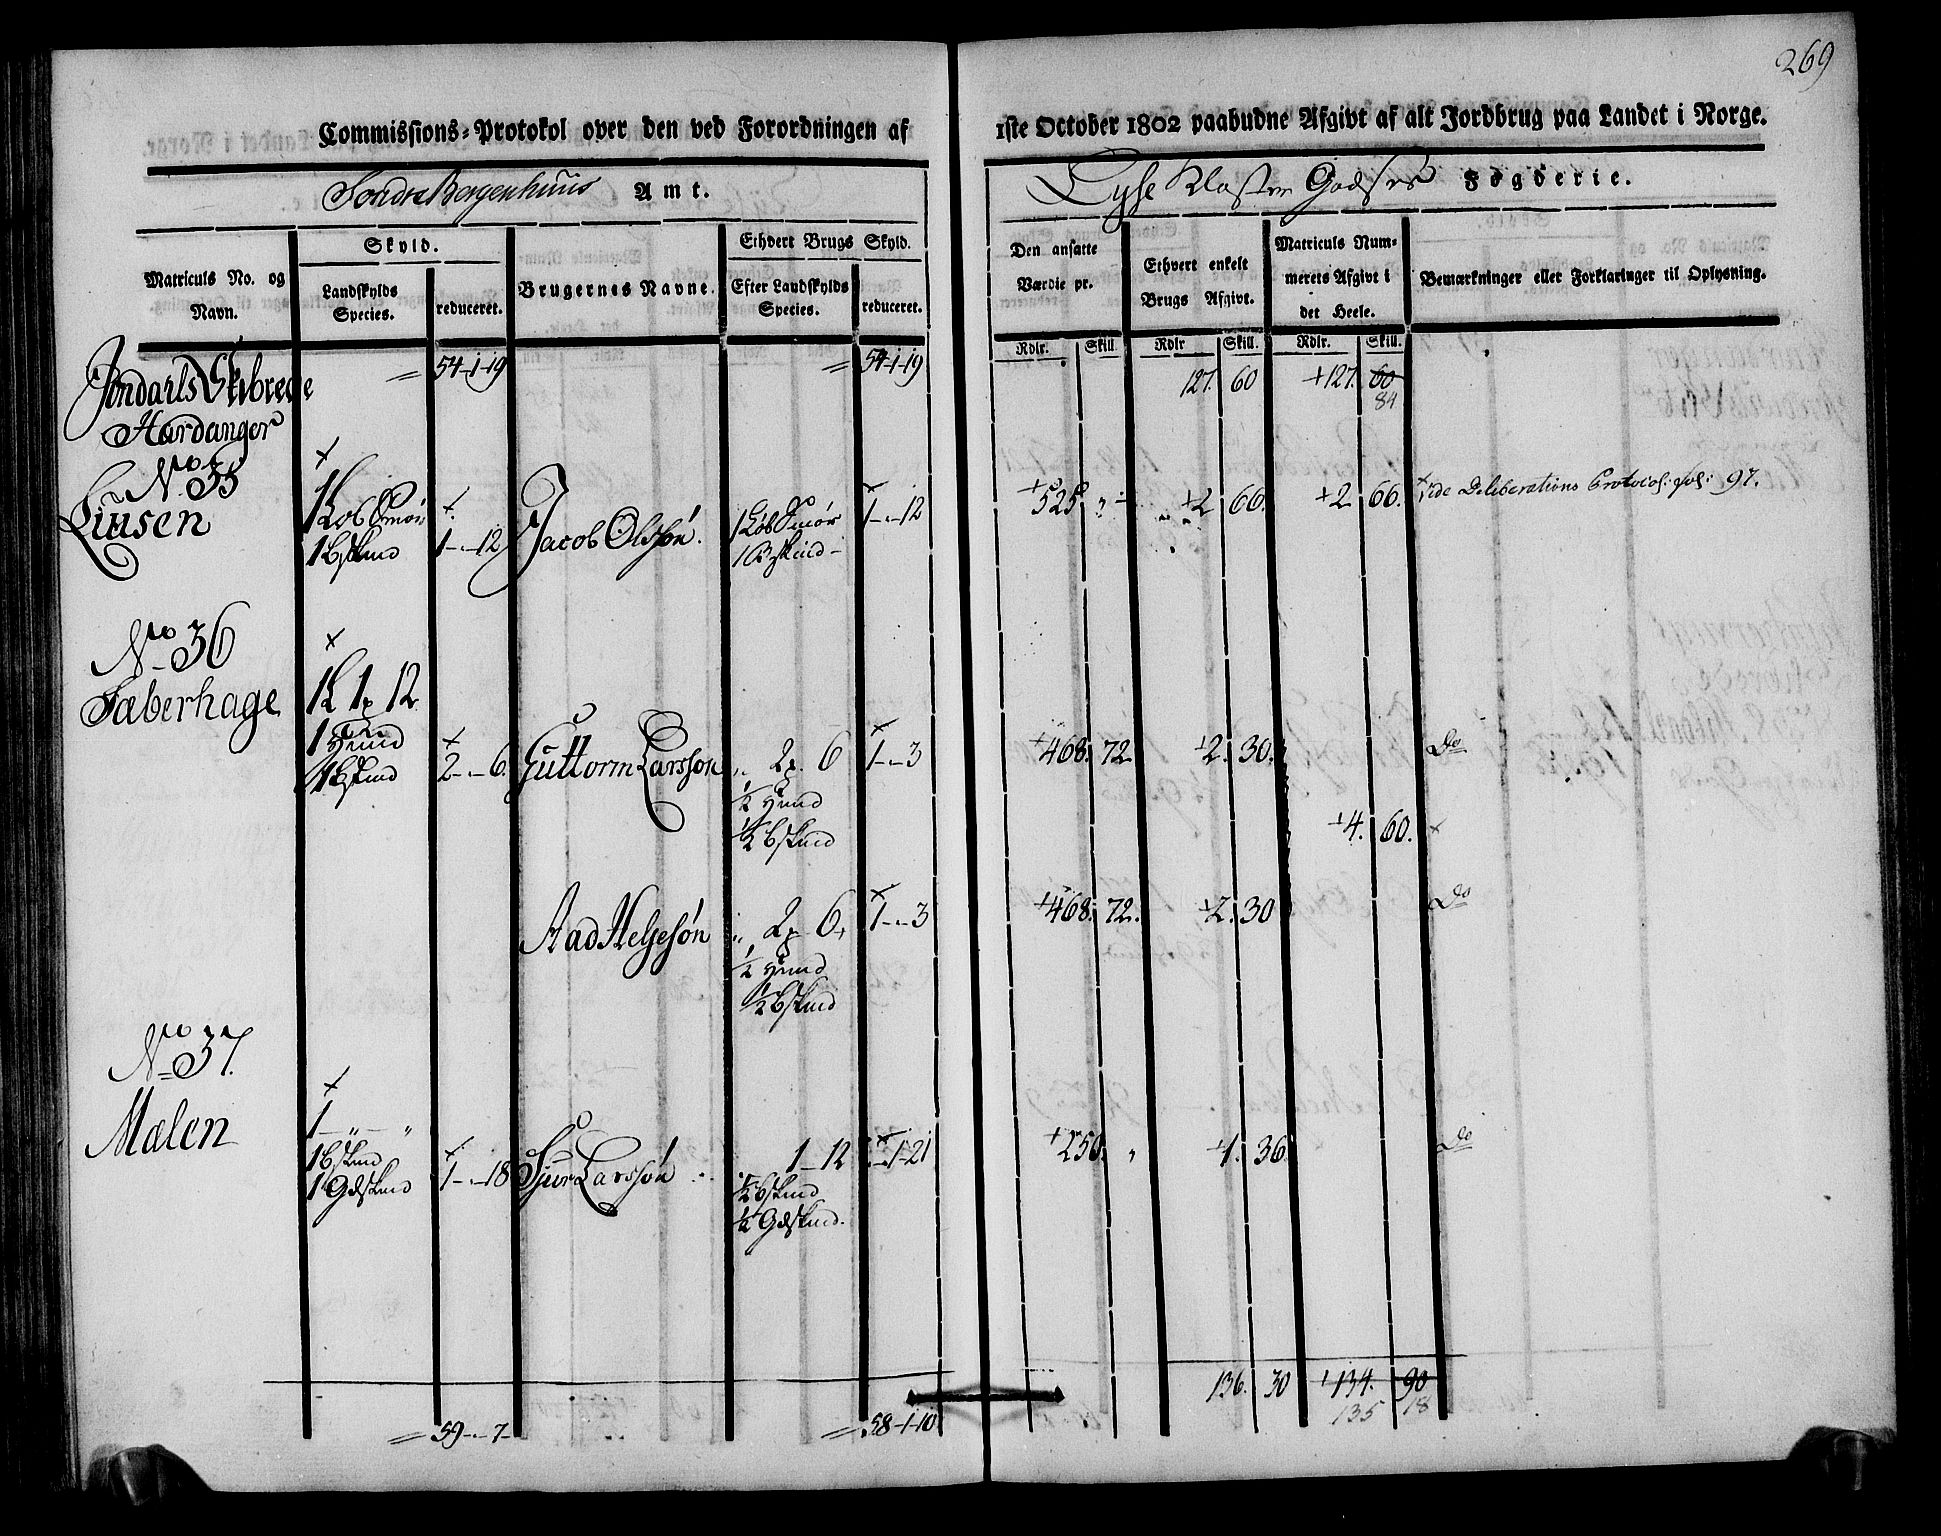 269
Commissions-Protokol over den ved Forordningen af
1ste October 1802 paabudne Afgivt af alt Jordbrug paa Landet i Norge.
Søndre Bergenhuus Amt.
Lyse Kloster Godses Fogderie.
Matriculs No. og Navn.
Skyld.
Landskylds Species.
reduceret.
Brugernes Navne.
Ethvert Brugs Skyld.
Efter Landskylds Species.
reduceret.
Den ansatte Værdie pr.
Ethvert enkelt Brugs Afgivt.
Matriculs Nummerets Afgivt i det Heele.
Bemærkninger eller Forklaringer til Oplysning.
Rdlr. Skill. Rdlr Skill. Rdlr. Skill.
Jondahls Skibrede = 54-1-19 = 54-1-19 127. 60 +127. 60
84
Hardanger
No 35
Liusen
1 Løb Smør 1-"-12 Jacob Olssøn. 1 Løb Smør 1-"-12 525 " 2 66. +2 66. Vide Deliberations Protocol: fol: 97.
1 Bskind 1 Bskind
No 36
Sæberhage
1 L 1 p 12
1 Huud
1 Bskind 2-"-6 Guttorm Larssøn " 2 p. 6 1-"-3 468. 72. 2. 30. Do
½ Huud
½ Bskind
4. 60.
Aad Helgesøn " 2 p 6 1-"-3 468. 72. 2. 30 Do
½ Huud
½ Bskind
No 37.
Mælen
1-"-"
1 Bskind 1-"-18 Siur Larssøn 1-12 "-1-21 250. " 1. 36. Do
1 Gdskind ½ Bskind
½ Gdskind.
136. 30 134. 90
135 18
= 59-"-7- = 58-1-10